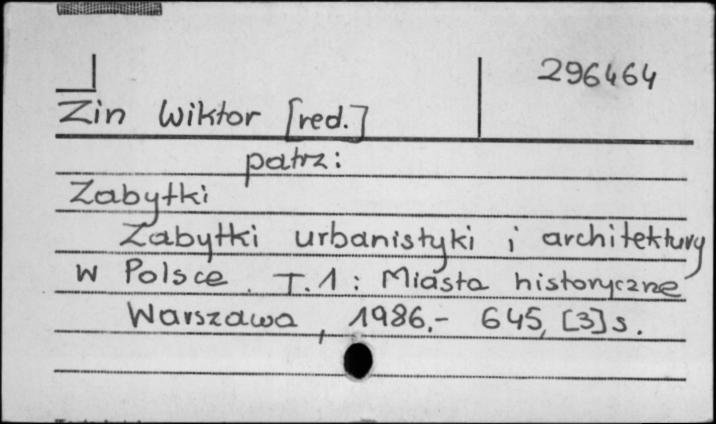 296464
Zin Wiktor [red.]
patrz:
Zabytki
Zabytki urbanistyki i architektury
w Polsce. T.1: Miasta historyczne
Warszawa, 1986.- 645, [3]s.